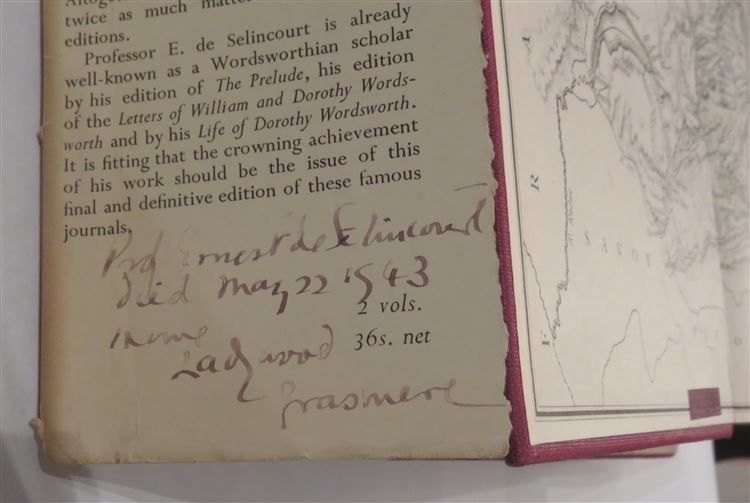 twice as much matter
editions.
Professor E. de Selincourt is already
well-known as a Wordsworthian scholar
by his edition of The Prelude, his edition
of the Letters of William and Dorothy Words-
worth and by his Life of Dorothy Wordsworth.
It is fitting that the crowning achievement
of his work should be the issue of this
final and definitive edition of these famous
journals.
Prof Ernest de Selincourt
Died May 22 1943
2 vols.
Ladywood
36s. net
Grasmere
A
R
F
SAVOY